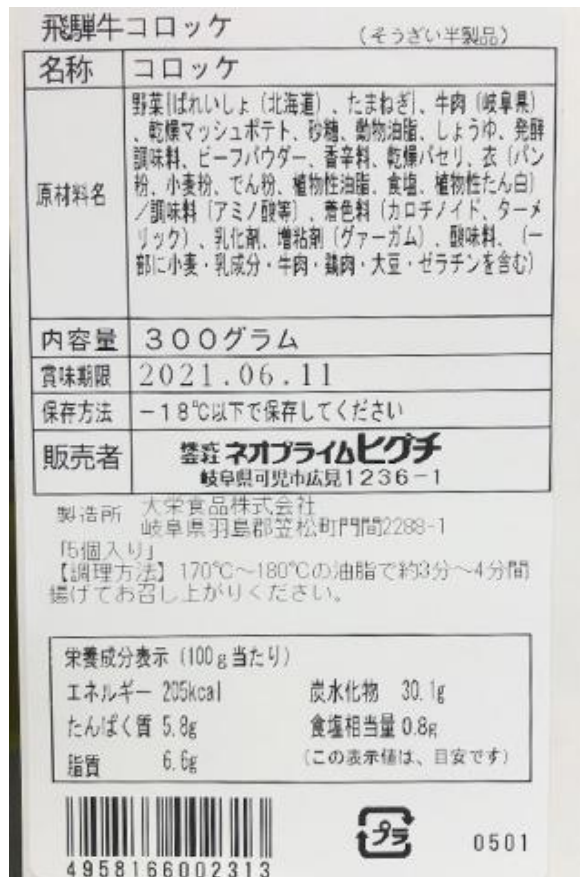 飛騨牛コロッケ (そうざい半製品)
名称 コロッケ
原材料名
野菜[ばれいしょ(北海道)、たまねぎ]、牛肉(岐阜県)
、乾燥マッシュポテト、砂糖、動物油脂、しょうゆ、発酵
調味料、ビーフパウダー、香辛料、乾燥パセリ、衣(パン
粉、小麦粉、でん粉、植物性油脂、食塩、植物性たん白)
/調味料(アミノ酸等)、着色料(カロチノイド、ターメ
リック)、乳化剤、増粘剤(グァーガム)、酸味料、(一
部に小麦・乳成分・牛肉・鶏肉・大豆・ゼラチンを含む)
内容量 300グラム
賞味期限 2021.06.11
保存方法 -18℃以下で保存してください
販売者 株式会社 ネオプライムヒグチ
岐阜県可児市広見1236-1
製造所 大栄食品株式会社
岐阜県羽島郡笠松町門間2288-1
「5個入り」
【調理方法】170℃~180℃の油脂で約3分~4分間
揚げてお召し上がりください。
栄養成分表示(100g当たり)
エネルギー 205kcal 炭水化物 30.1g
たんぱく質 5.8g 食塩相当量 0.8g
脂質 6.6g (この表示値は、目安です)
プラ 0501
4958166002313